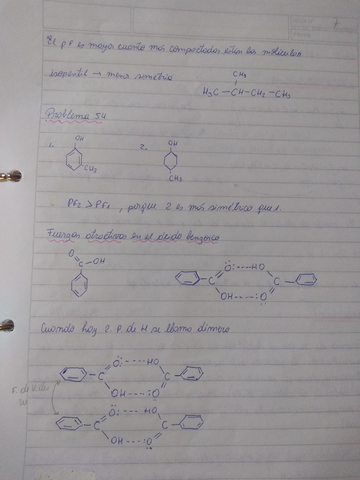 El p.f es mayor cuanto más compactadas estén las moléculas
isopentil → menos simetría
CH₃
H₃C — CH — CH₂ — CH₃
Problema 54
1. OH CH₃
2. OH CH₃
PF₂ > PF₁ , porque 2 es más simétrica que 1.
Fuerzas atractivas en el ácido benzoico
O C OH
C O: ---- HO C
OH ---- :O
Cuando hay 2 P. de H se llama dímero
C O: ---- HO C
OH ---- :O
C O: ---- HO C
OH ---- :O